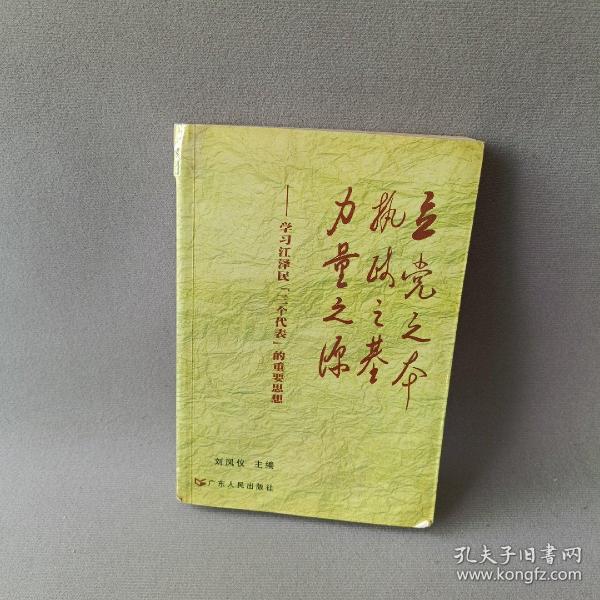 立党之本
执政之基
力量之源
——学习江泽民「三个代表」的重要思想
刘凤仪 主编
广东人民出版社
孔夫子旧书网
www.kongfz.com